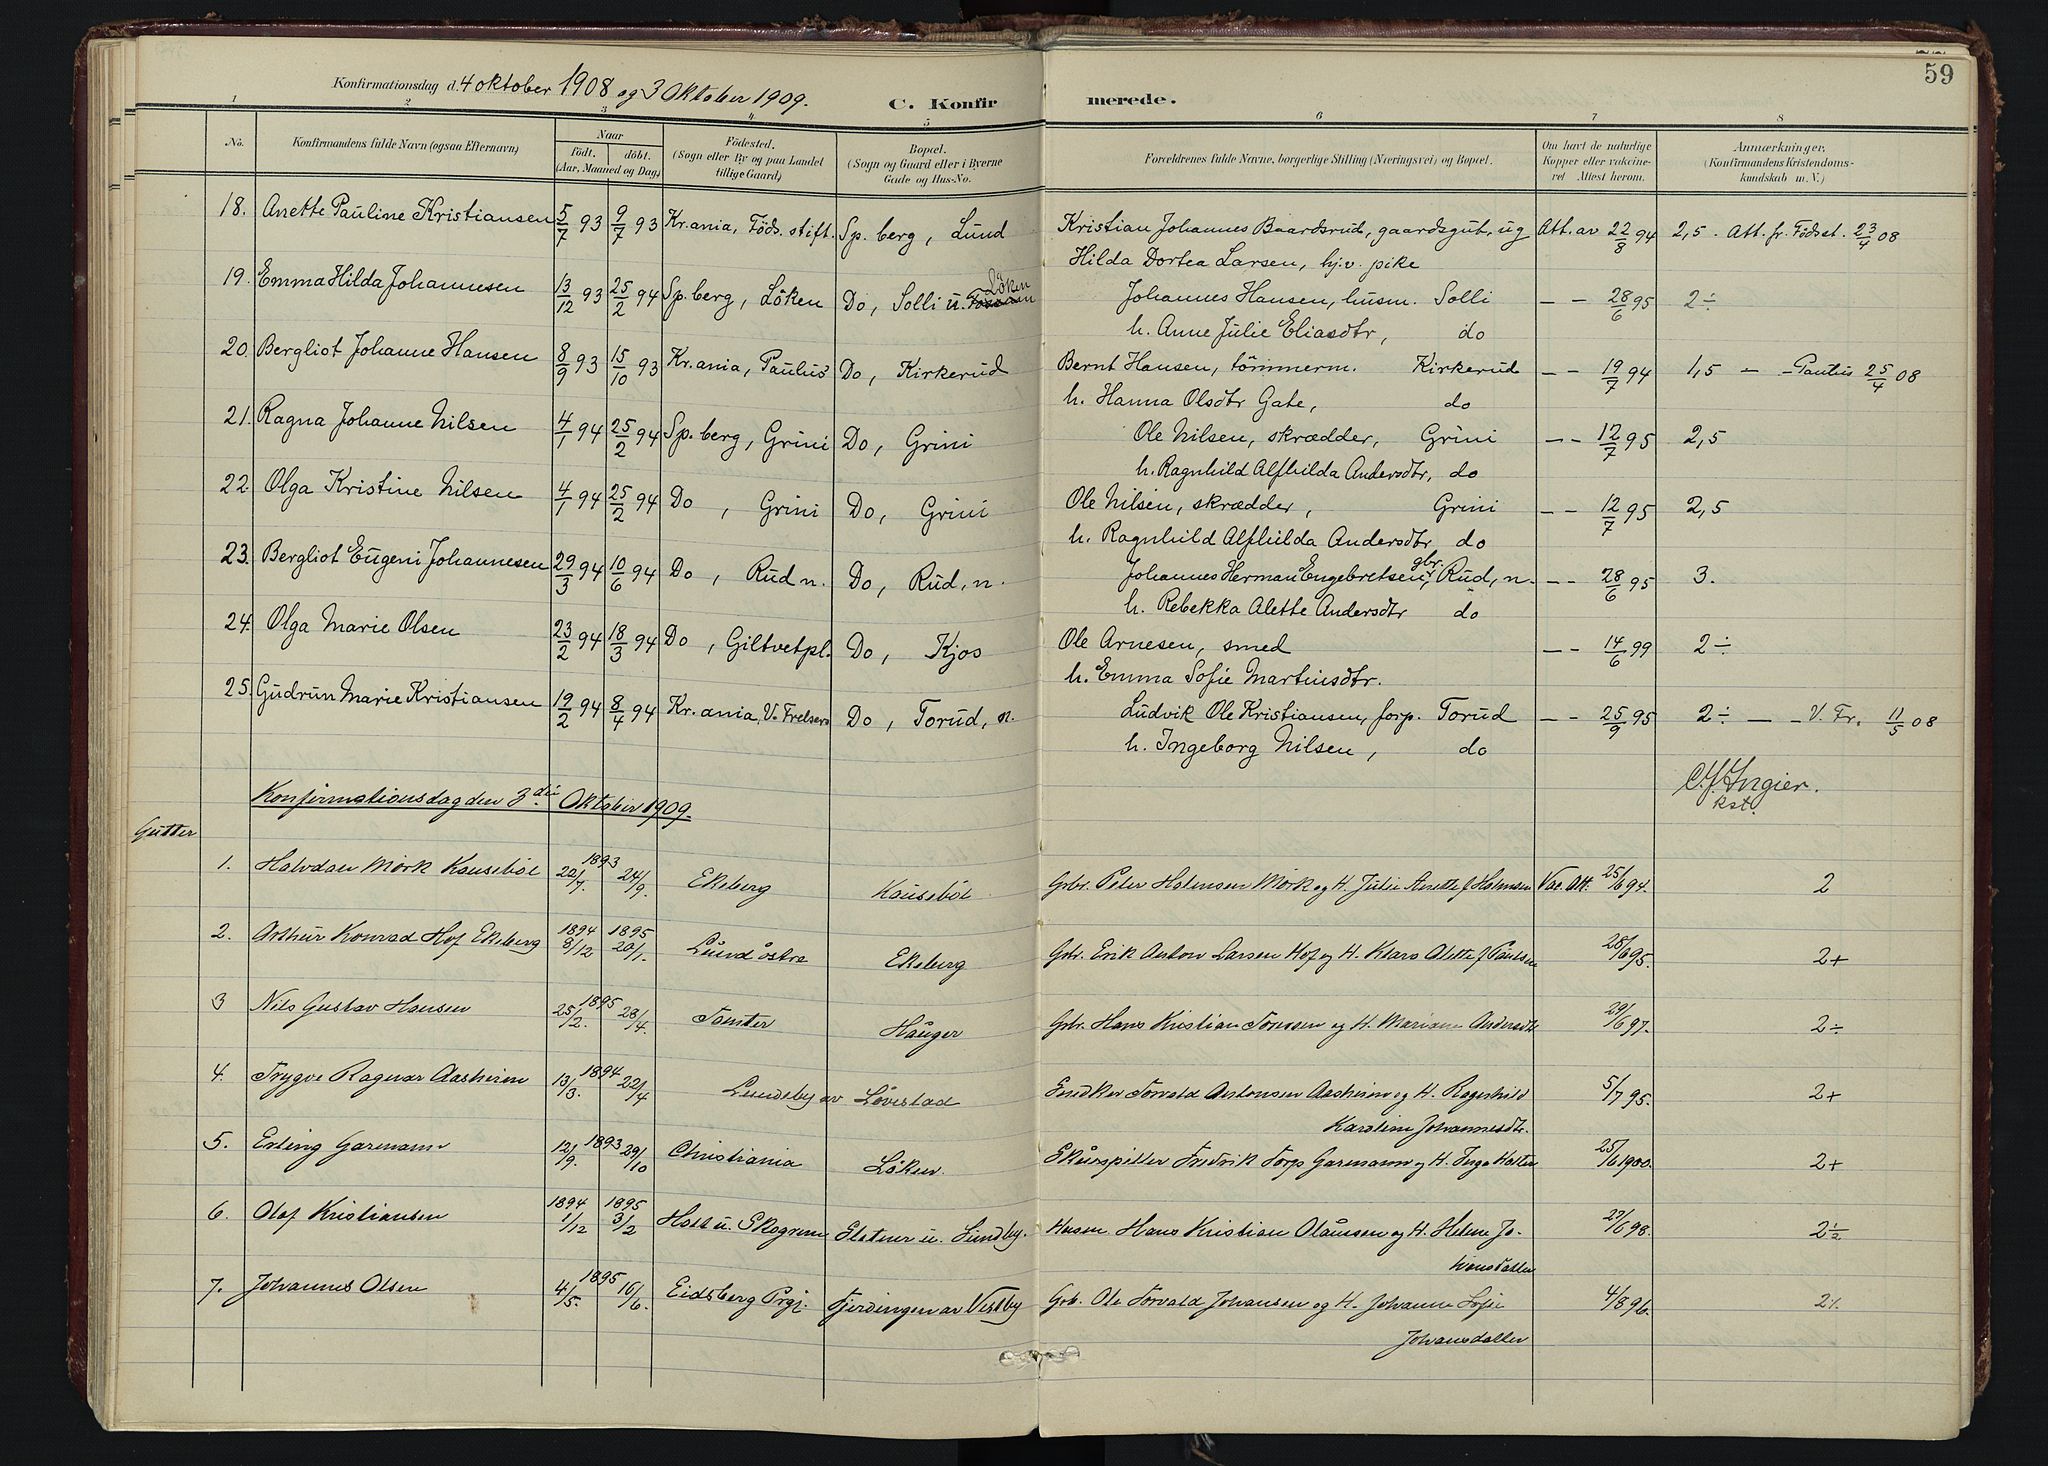 59
Konfirmationsdag d. 4 oktober 1908 og 3 Oktober 1909.
C. Konfir merede.
1 2 3 4. 5 6 7 8
No. Konfirmandens fulde Navn (ogsaa Efternavn) Naar födt. döbt. (Aar, Maaned og Dag) Födested. (Sogn eller By og paa Landet tillige Gaard) Bopæl. (Sogn og Gaard eller i Byerne Gade og Hus-No. Forældrenes fulde Navne, borgerlige Stilling (Næringsvei) og Bopæl. Om havt de naturlige Kopper eller vaccineret Attest herom. Anmærkninger, (Konfirmandens Kristendomskundskab m. V.)
18. Anette Pauline Kristiansen 5/7 93 9/7 93 Kr.ania, Föds. stift. Sp. berg, Lund Kristian Johannes Baardsrud, gaardsgut, ug Att. av 22/8 94 2,5. Att. fr. Födsst. 23/4 08
Hilda Dortea Larsen, hj.v. pike
19. Emma Hilda Johannesen 13/12 93 25/2 94 Sp. berg, Löken Do, Solli u. Löken Johannes Hansen, husm. Solli — — 28/6 95 2÷
h. Anne Julie Eliasdtr, do
20. Bergliot Johanne Hansen 8/9 93 15/10 93 Kr.ania, Paulus Do, Kirkerud Bernt Hansen, tömmerm. Kirkerud — — 19/7 94 1,5 — — Paulus 25/4 08
h. Hanna Olsdtr Gate, do
21. Ragna Johanne Nilsen 4/1 94 25/2 94 Sp. berg, Grini Do, Grini Ole Nilsen, skrædder, Grini — — 12/7 95 2,5
h. Ragnhild Alfhilda Andersdtr, do
22. Olga Kristine Nilsen 4/1 94 25/2 94 Do, Grini Do, Grini Ole Nilsen, skrædder, Grini — — 12/7 95 2,5
h. Ragnhild Alfhilda Andersdtr do
23. Bergliot Eugeni Johannesen 29/3 94 10/6 94 Do, Rud n. Do, Rud, n. Johannes Herman Engebretsen, gbr. Rud, n. — — 28/6 95 3.
h. Rebekka Alette Andersdtr do
24. Olga Marie Olsen 23/2 94 18/3 94 Do, Giltvetpl. Do, Kjos Ole Arnesen, smed — — 14/6 99 2÷
h. Emma Sofie Martinsdtr.
25. Gudrun Marie Kristiansen 19/2 94 8/4 94 Kr.ania, V. Frelsers Do, Torud, n. Ludvik Ole Kristiansen, forp. Torud — — 25/9 95 2÷ — — V. Fr. 11/5 08
h. Ingeborg Nilsen, do
C. J. Ingier.
kst.
Konfirmationsdag den 3die Oktober 1909.
Gutter
1. Halvdan Mörk Kauseböl 1893 22/7. 24/9. Ekeberg Kauseböl Gbr. Peter Halmsen Mörk og H. Julie Anette f. Halmsen Vac. Att. 25/6 94. 2
2. Arthur Konrad Hof Ekeberg 1894 8/12 1895 20/1. Lund östre Ekeberg Gbr. Erik Anton Larsen Hof og H. Klara Alette f. Paulsen 28/6 95. 2+
3 Nils Gustav Hansen 1895 25/2. 28/4. Tomter Hauger Gbr. Hans Kristian Tonssen og H. Mariane Andersdtr 29/6 97. 2÷
4. Trygve Ragnar Aasheim 13/3. 1894 22/4 Lundeby av Lövestad Torvald Antonsen Aasheim og H. Ragnhild 5/7 95. 2+
Karoline Johannesdtr.
5. Erling Garmann 12/9. 1893 29/10 Christiania Löken. Skuespiller Fredrik Torp Garmann og H. Inga Holter 25/6 1900. 2+
6. Olaf Kristiansen 1894 1/12 1895 3/2 Holt u. Skogrum u. Lundby. Husm. Hans Kristian Olaussen og H. Helene Jo- 27/6 98. 2 ÷/2
hansdatter
7. Johannes Olsen 4/5. 1895 16/6. Eidsberg Prgj. Fjerdingen av Vestby Gbr. Ole Torvald Johansen og H. Johanne Sofie 4/8 96. 2÷
Johansdatter